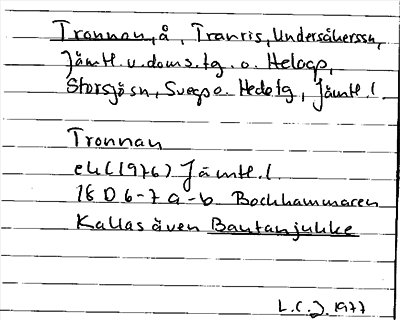 Tronnan, å, Tranris, Undersåkerssn,
Jämtl. v. doms. tg. o. Helagp,
Storsjö sn, Svegp o. Hedetg, Jämtl. l.
Tronnan
ekl (1976) Jämtl. l.
18 D 6-7 a-b Bockhammaren
Kallas även Bautanjukke
L.C.J. 1977